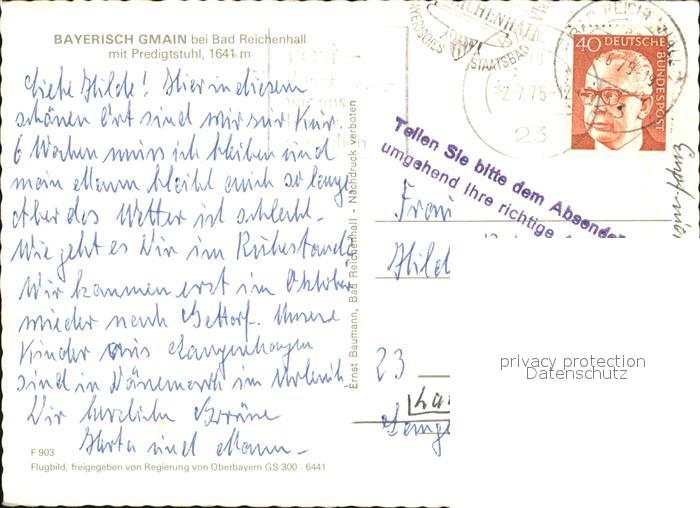 BAYERISCH GMAIN bei Bad Reichenhall
mit Predigtstuhl, 1641 m
Liebe Hilde! Hier in diesem
schönen Ort sind wir zur Kur.
6 Wochen muss ich bleiben und
mein Mann bleibt auch so lange.
Aber das Wetter ist schlecht.
Wie geht es Dir im Ruhestand?
Wir kommen erst im Oktober
wieder nach
Unsere
Kinder aus Langenhagen
sind in Dänemark im Urlaub.
Dir herzliche Grüsse
Herta und Mann.
F 903
Flugbild, freigegeben von Regierung von Oberbayern GS 300 - 6441
Ernst Baumann, Bad Reichenhall - Nachdruck verboten
BAYERISCHES
STAATSBAD
-2.7.75-12
23
40 DEUTSCHE
BUNDESPOST
Teilen Sie bitte dem Absender
umgehend Ihre richtige
Frau
Hild
23
privacy protection
Datenschutz